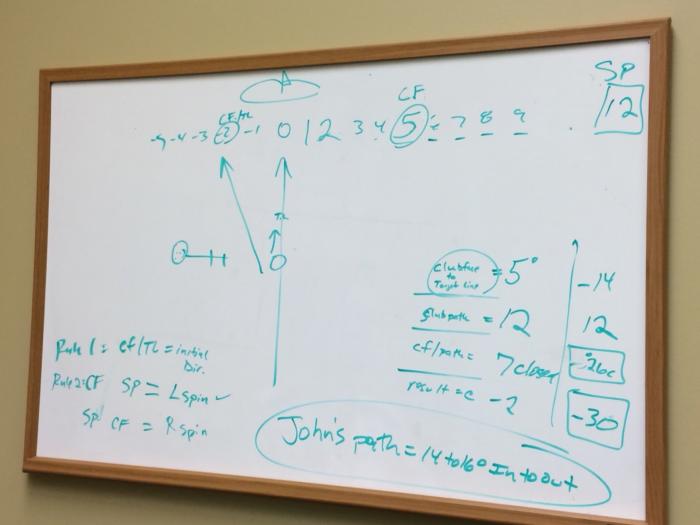 SP
12
CF
CF/TL
-5 -4 -3 -2 -1 0 1 2 3 4 5 6 7 8 9
TL
Clubface
to
Target line
= 5°
Clubpath = 12
cf/path = 7 closed
result = c -2
-14
12
-26c
-30
Rule 1 = cf/TL = initial
Dir.
Rule 2 = CF SP = L spin ✓
SP CF = R spin
John's path = 14 to 16° In to out